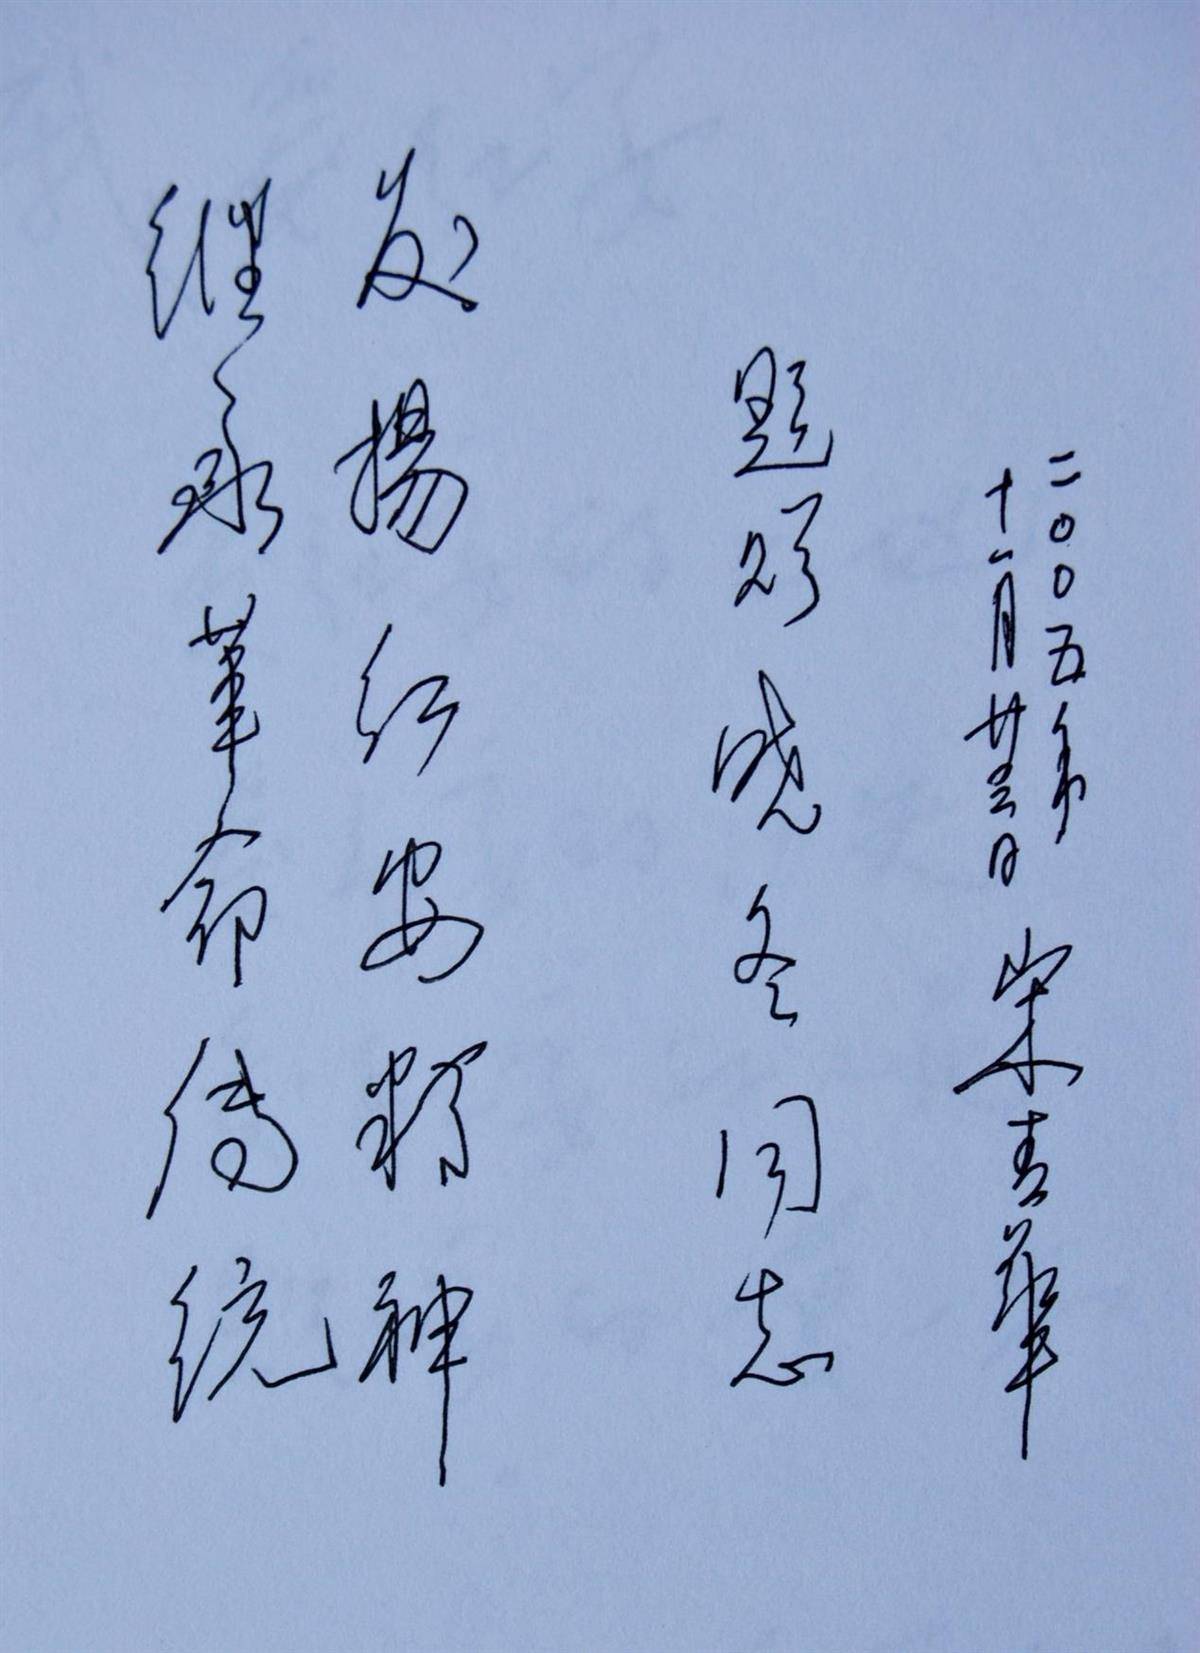 二〇〇五年
十一月廿三日 宋青华
题 晓冬同志
发扬红安精神
继承革命传统